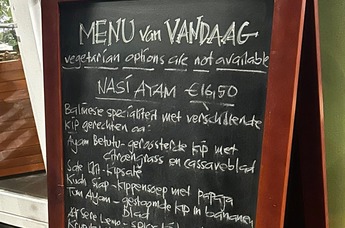 MENU van VANDAAG
vegetarian options are not available
NASI AYAM €16,50
Balinese specialiteit met verschillende
kip gerechten oa:
Ayam Betutu - geroosterde kip met
citroengrass en cassaveblad
Sate Lilit - kipsate
Kuah Siap - kippensoep met Papaja
Tum Ayam - gestoomde kip in bananen
blad